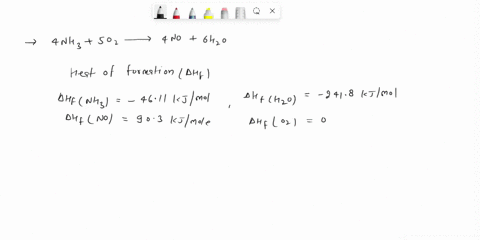 → 4NH₃ + 5O₂ ⟶ 4NO + 6H₂O
Heat of formation (ΔHf)
ΔHf (NH₃) = - 46.11 kJ/mol , ΔHf (H₂O) = -241.8 kJ/mol
ΔHf (NO) = 90.3 kJ/mole ΔHf (O₂) = 0